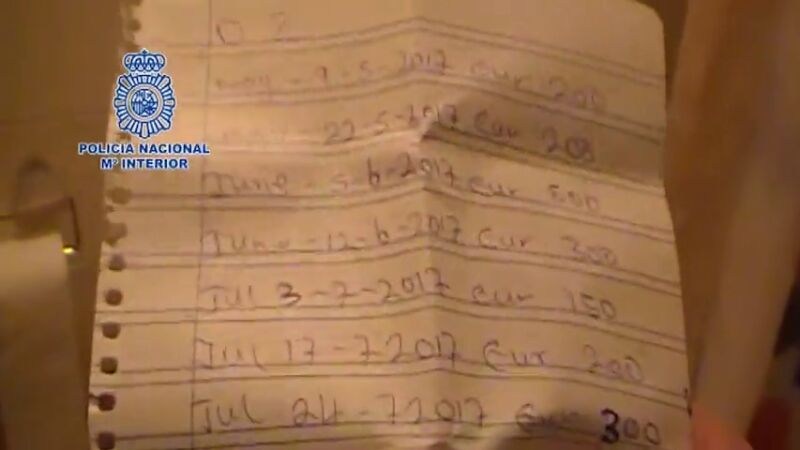 POLICIA NACIONAL
Mº INTERIOR
may - 9-5-2017 Eur 200
22-5-2017 Eur 200
June - 5-6-2017 Eur 500
June - 12-6-2017 Eur 300
Jul 3-7-2017 Eur 150
Jul 17-7 2017 Eur 200
Jul 24-7 2017 Eur 300